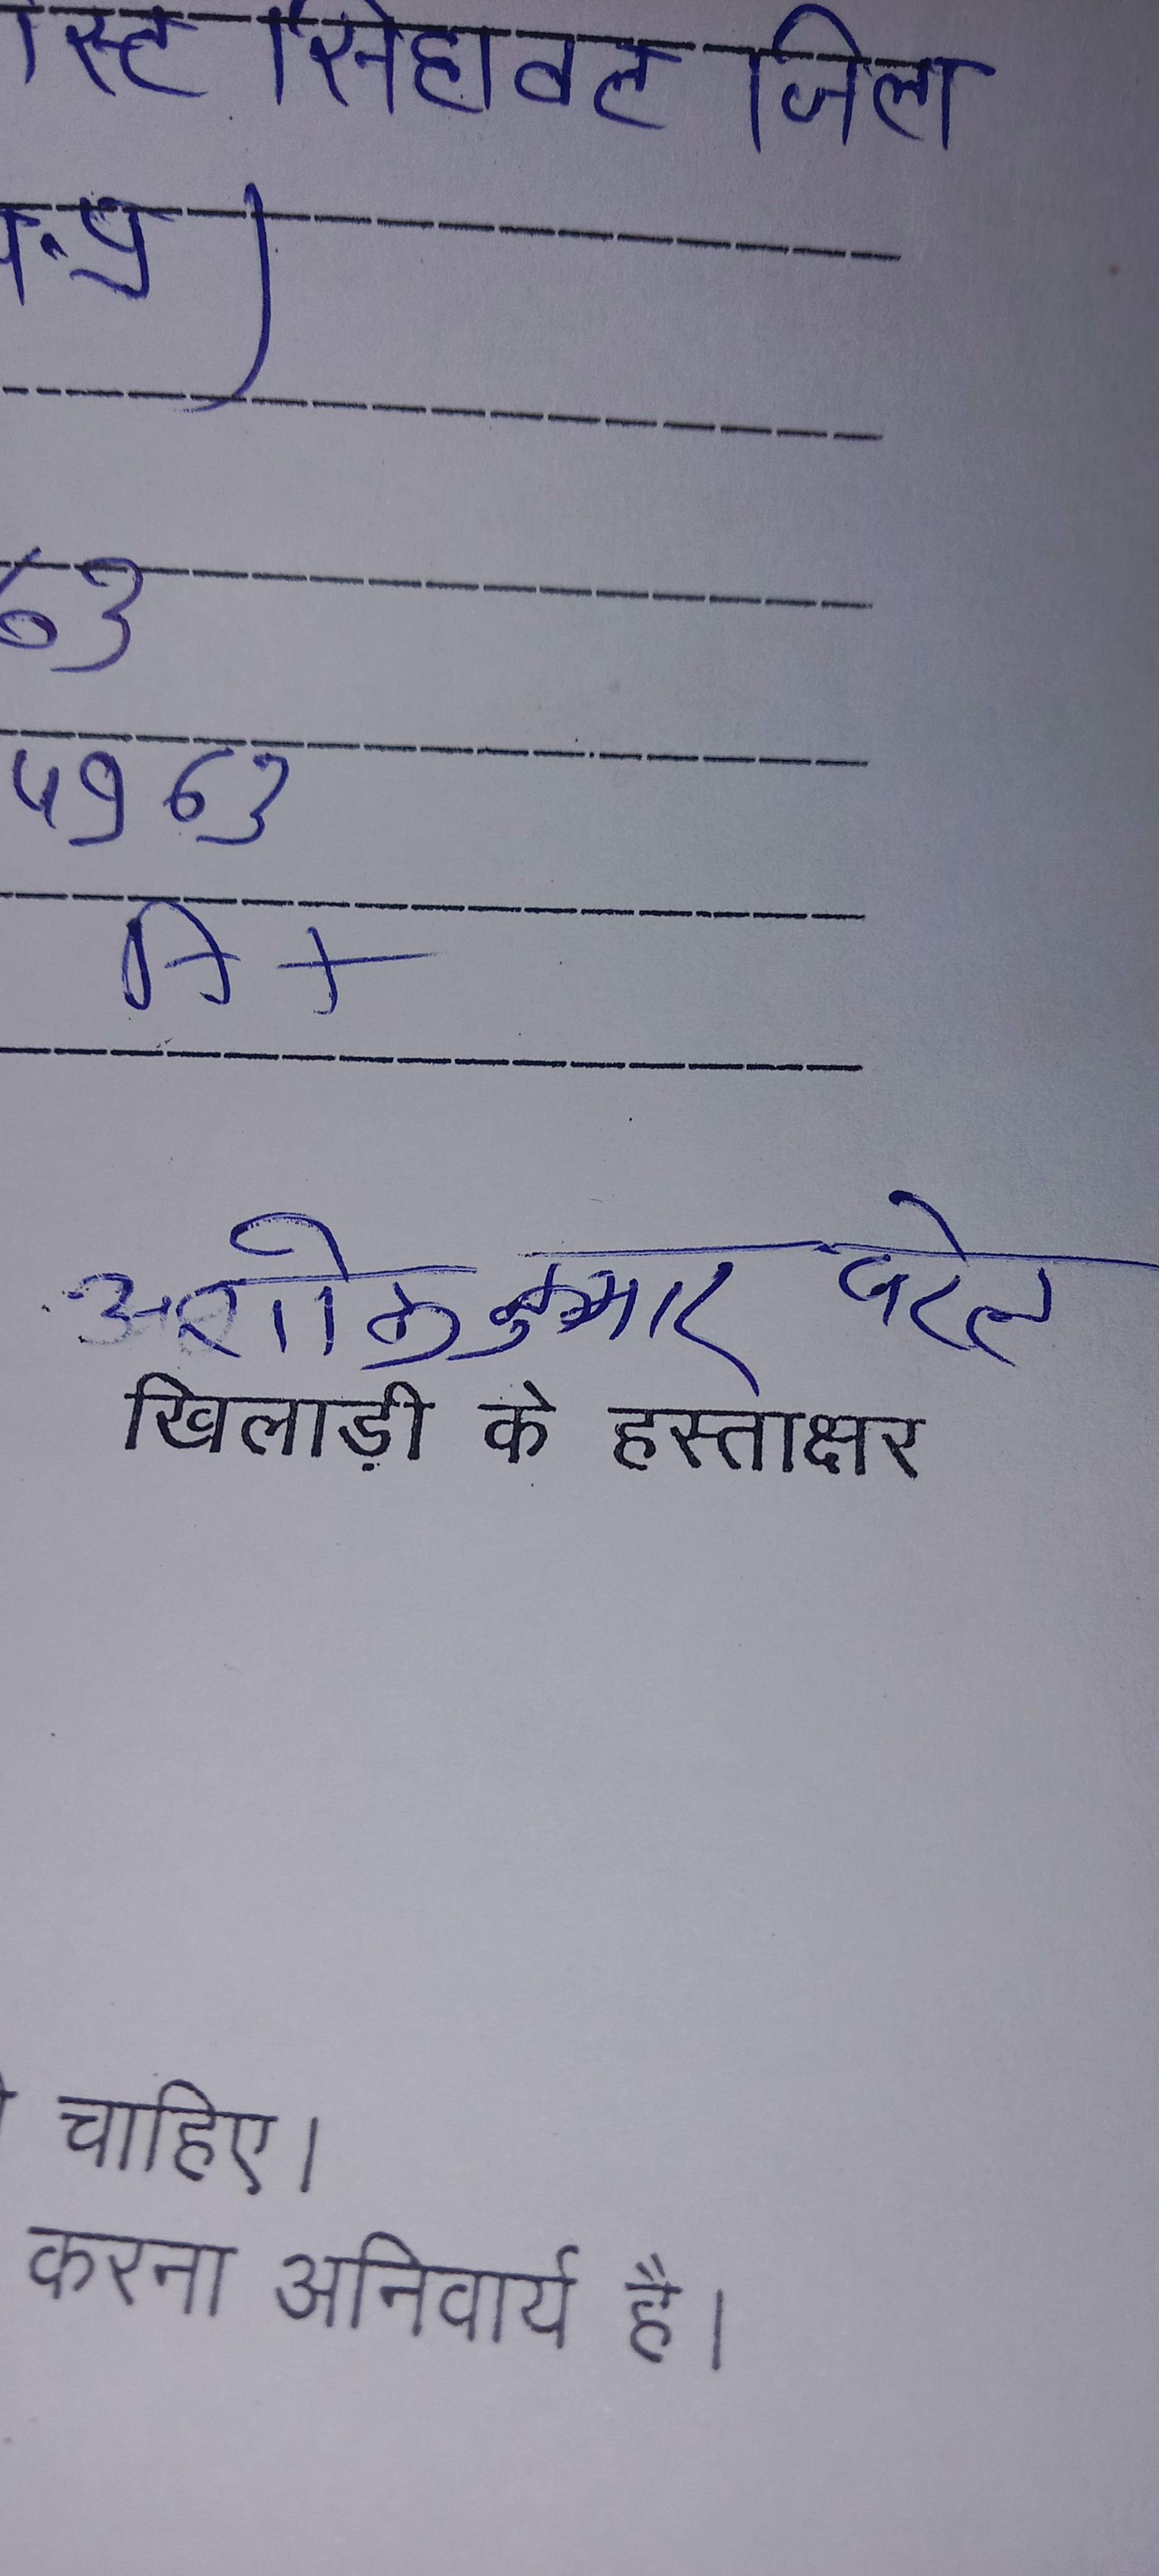 सिहावल जिला
म.प्र )
63
5963
A+
अशोक कुमार पटेल
खिलाड़ी के हस्ताक्षर
चाहिए।
करना अनिवार्य है।